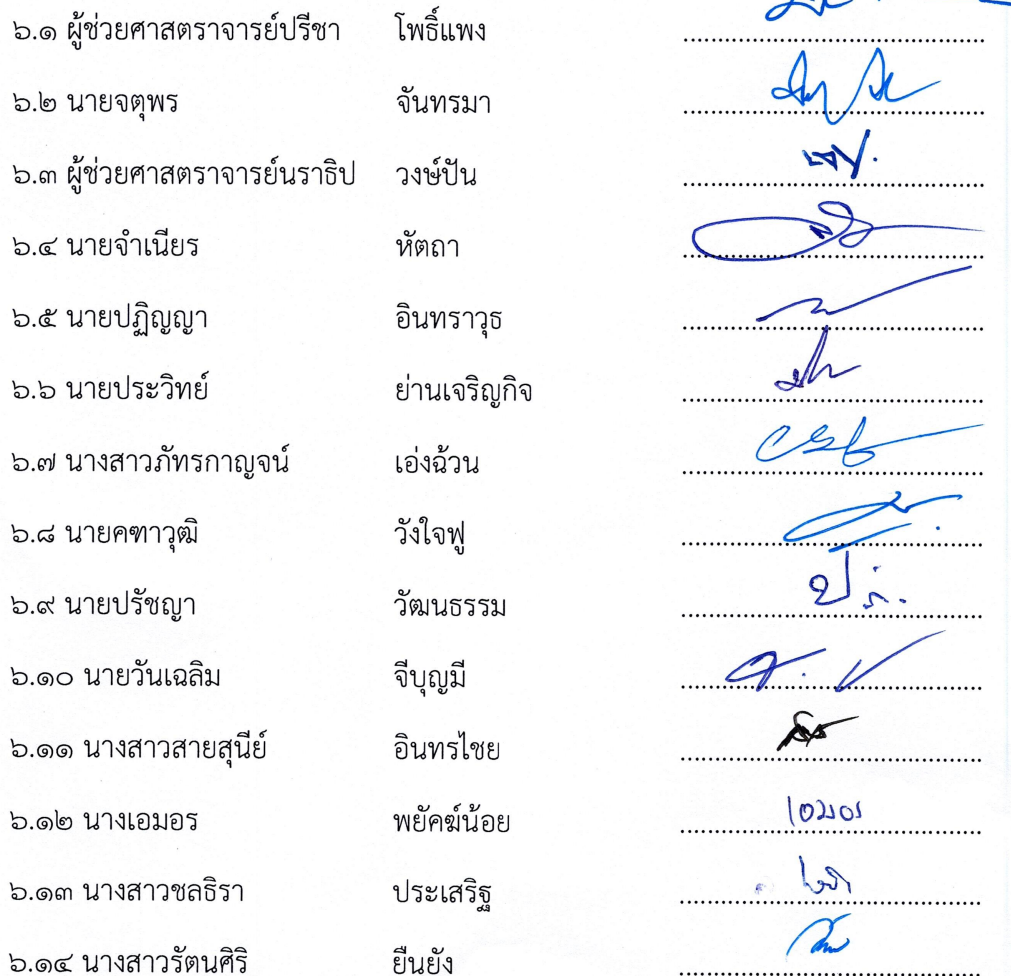 ๖.๑ ผู้ช่วยศาสตราจารย์ปรีชา โพธิ์แพง
๖.๒ นายจตุพร จันทรมา
๖.๓ ผู้ช่วยศาสตราจารย์นราธิป วงษ์ปัน
๖.๔ นายจำเนียร หัตถา
๖.๕ นายปฏิญญา อินทราวุธ
๖.๖ นายประวิทย์ ย่านเจริญกิจ
๖.๗ นางสาวภัทรกาญจน์ เอ่งฉ้วน
๖.๘ นายคฑาวุฒิ วังใจฟู
๖.๙ นายปรัชญา วัฒนธรรม
๖.๑๐ นายวันเฉลิม จีบุญมี
๖.๑๑ นางสาวสายสุนีย์ อินทรไชย
๖.๑๒ นางเอมอร พยัคฆ์น้อย เอมอร
๖.๑๓ นางสาวชลธิรา ประเสริฐ
๖.๑๔ นางสาวรัตนศิริ ยืนยัง